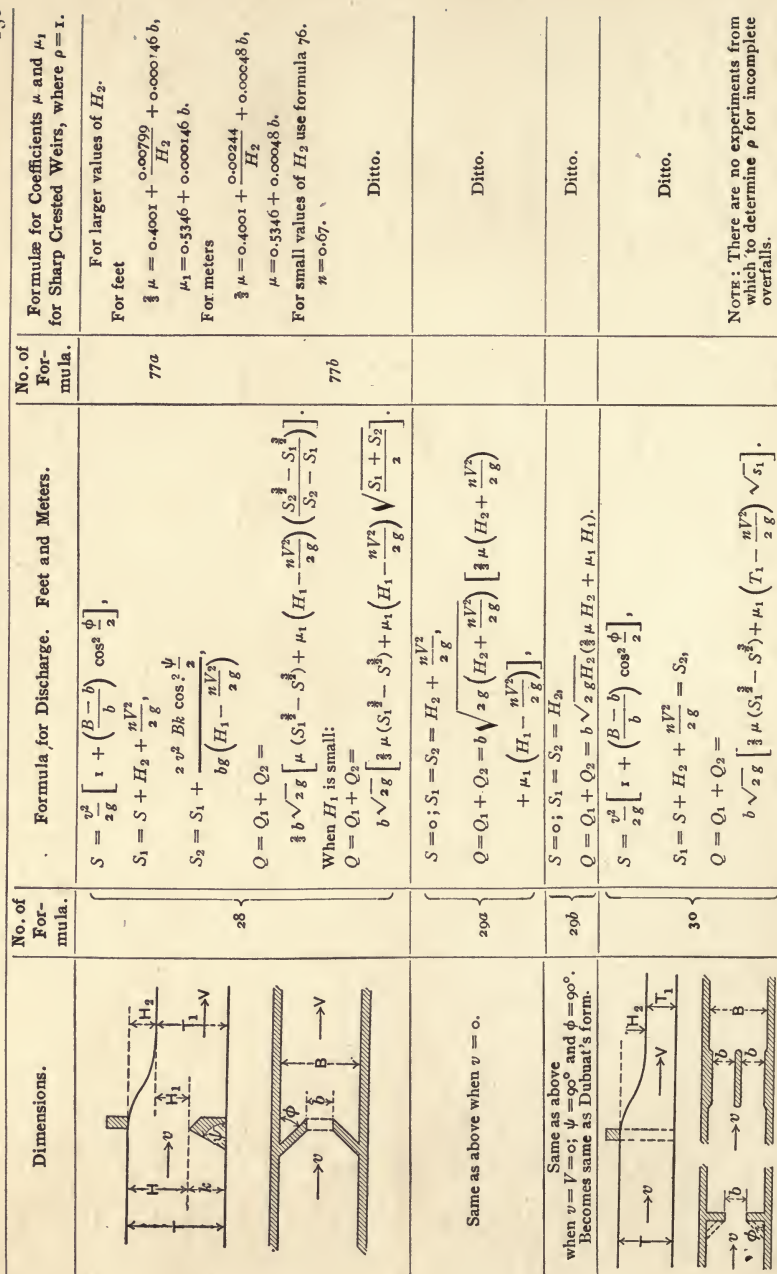 Dimensions.
No. of
For-
mula.
Formula for Discharge. Feet and Meters.
No. of
For-
mula.
Formulæ for Coefficients μ and μ₁
for Sharp Crested Weirs, where ρ = 1.
H₂
H₁
T₁
→V
→v
H
k
T
ψ
→v
ϕ
b
B
→V
28
S = v²/2g [1 + ((B − b)/b) cos² ϕ/2],
S₁ = S + H₂ + nV²/2g,
S₂ = S₁ + 2 v² Bk cos.² ψ/2 / bg (H₁ − nV²/2g)
Q = Q₁ + Q₂ =
⅔ b √2g [μ (S₁^{3/2} − S^{3/2}) + μ₁ (H₁ − nV²/2g) ((S₂^{3/2} − S₁^{3/2})/(S₂ − S₁))].
When H₁ is small:
Q = Q₁ + Q₂ =
b √2g [⅔ μ (S₁^{3/2} − S^{3/2}) + μ₁ (H₁ − nV²/2g) √((S₁ + S₂)/2)].
77a
77b
For larger values of H₂.
For feet
⅔ μ = 0.4001 + 0.00799/H₂ + 0.000146 b,
μ₁ = 0.5346 + 0.000146 b.
For meters
⅔ μ = 0.4001 + 0.00244/H₂ + 0.00048 b,
μ = 0.5346 + 0.00048 b.
For small values of H₂ use formula 76.
n = 0.67.
Ditto.
Same as above when v = 0.
29a
S = 0; S₁ = S₂ = H₂ + nV²/2g,
Q = Q₁ + Q₂ = b √(2g (H₂ + nV²/2g)) [⅔ μ (H₂ + nV²/2g)
+ μ₁ (H₁ − nV²/2g)],
Ditto.
Same as above
when v = V = 0; ψ = 90° and ϕ = 90°.
Becomes same as Dubuat's form-
29b
S = 0; S₁ = S₂ = H₂,
Q = Q₁ + Q₂ = b √2gH₂ (⅔ μ H₂ + μ₁ H₁).
Ditto.
T
→v
H₂
T₁
→V
→v
ϕ
b
→v
b
b
B
→V
30
S = v²/2g [1 + ((B − b)/b) cos² ϕ/2],
S₁ = S + H₂ + nV²/2g = S₂,
Q = Q₁ + Q₂ =
b √2g [⅔ μ (S₁^{3/2} − S^{3/2}) + μ₁ (T₁ − nV²/2g) √s₁].
Ditto.
NOTE: There are no experiments from
which to determine ρ for incomplete
overfalls.